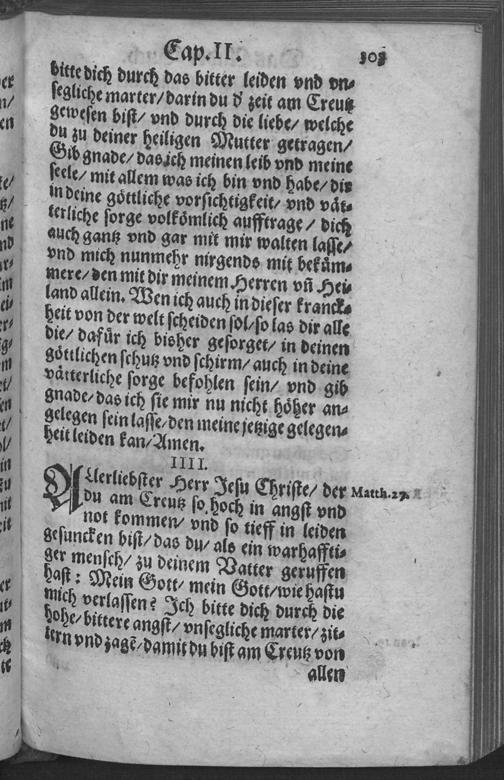 Cap. II. 303
bitte dich durch das bitter leiden vnd vn-
segliche marter/ darin du d' zeit am Creutz
gewesen bist/ vnd durch die liebe/ welche
du zu deiner heiligen Mutter getragen/
Gib gnade/ das ich meinen leib vnd meine
seele/ mit allem was ich bin vnd habe/ dir
in deine göttliche vorsichtigkeit/ vnd vät-
terliche sorge volkömlich aufftrage/ dich
auch gantz vnd gar mit mir walten lasse/
vnd mich nunmehr nirgends mit bekäm-
mere/ den mit dir meinem Herren vñ Hei-
land allein. Wen ich auch in dieser kranck-
heit von der welt scheiden sol/ so las dir alle
die/ dafür ich bisher gesorget/ in deinen
göttlichen schutz vnd schirm/ auch in deine
vätterliche sorge befohlen sein/ vnd gib
gnade/ das ich sie mir nu nicht höher an-
gelegen sein lasse/ den meine jetzige gelegen-
heit leiden kan/ Amen.
IIII.
ALlerliebster Herr Jesu Christe/ der Matth. 27.
du am Creutz so hoch in angst vnd
not kommen/ vnd so tieff in leiden
gesuncken bist/ das du/ als ein warhaffti-
ger mensch/ zu deinem Vatter geruffen
hast: Mein Gott/ mein Gott/ wie hastu
mich verlassen? Ich bitte dich durch die
hohe/ bittere angst/ vnsegliche marter/ zit-
tern vnd zagẽ/ damit du bist am Creutz von
allen